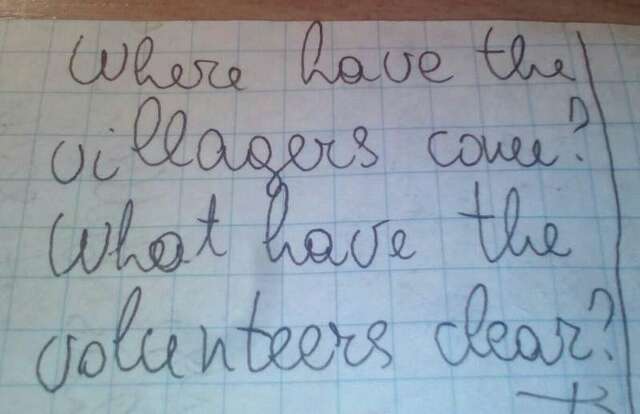 Where have the
villagers come?
What have the
volunteers clear?